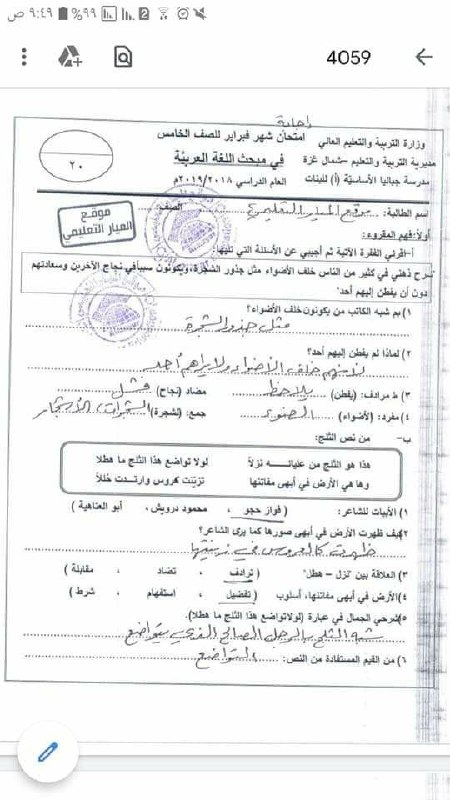 ٩:٤٩ ص
٩٩%
4059
إجابة
وزارة التربية والتعليم العالي
امتحان شهر فبراير للصف الخامس
مديرية التربية والتعليم –شمال غزة
في مبحث اللغة العربية
مدرسة جباليا الأساسية (أ) للبنات
العام الدراسي ٢٠١٩/٢٠١٨م
٢٠
اسم الطالبة: موقع الميار التعليمي الصف:
موقع
الميار التعليمي
أولاً:فهم المقروء:
أ-اقرئي الفقرة الآتية ثم أجيبي عن الأسئلة التي تليها:
"سرح ذهني في كثير من الناس خلف الأضواء مثل جذور الشجرة، ويكونون سبباً في نجاح الآخرين وسعادتهم
دون أن يفطن إليهم أحد"
١) بم شبه الكاتب من يكونون خلف الأضواء؟
مثل جذور الشجرة
٢) لماذا لم يفطن إليهم أحد؟
لأنهم خلف الأضواء ولا يراهم أحد
٣) مرادف: (يفطن) يلاحظ مضاد (نجاح) فشل
٤) مفرد: (الأضواء) الضوء جمع: (الشجرة) الشجرات، الأشجار
ب- من نص الثلج:
هذا هو الثلج من عليائه نزلاً لولا تواضع هذا الثلج ما هطلا
وها هي الأرض في أبهى مفاتنها تزيّنت كعروس وارتدت حُللاً
١) الأبيات للشاعر: ( فواز حجو ، محمود درويش ، أبو العتاهية )
٢) كيف ظهرت الأرض في أبهى صورها كما يرى الشاعر؟
ظهرت كالعروس في زينتها
٣) العلاقة بين "نزل – هطل" ( ترادف ، تضاد ، مقابلة )
٤) الأرض في أبهى مفاتنها، أسلوب ( تفضيل ، استفهام ، شرط )
٥) شرحي الجمال في عبارة (لولا تواضع هذا الثلج ما هطلا).
شبه الثلج بالرجل الصالح الذي يتواضع
٦) من القيم المستفادة من النص: التواضع